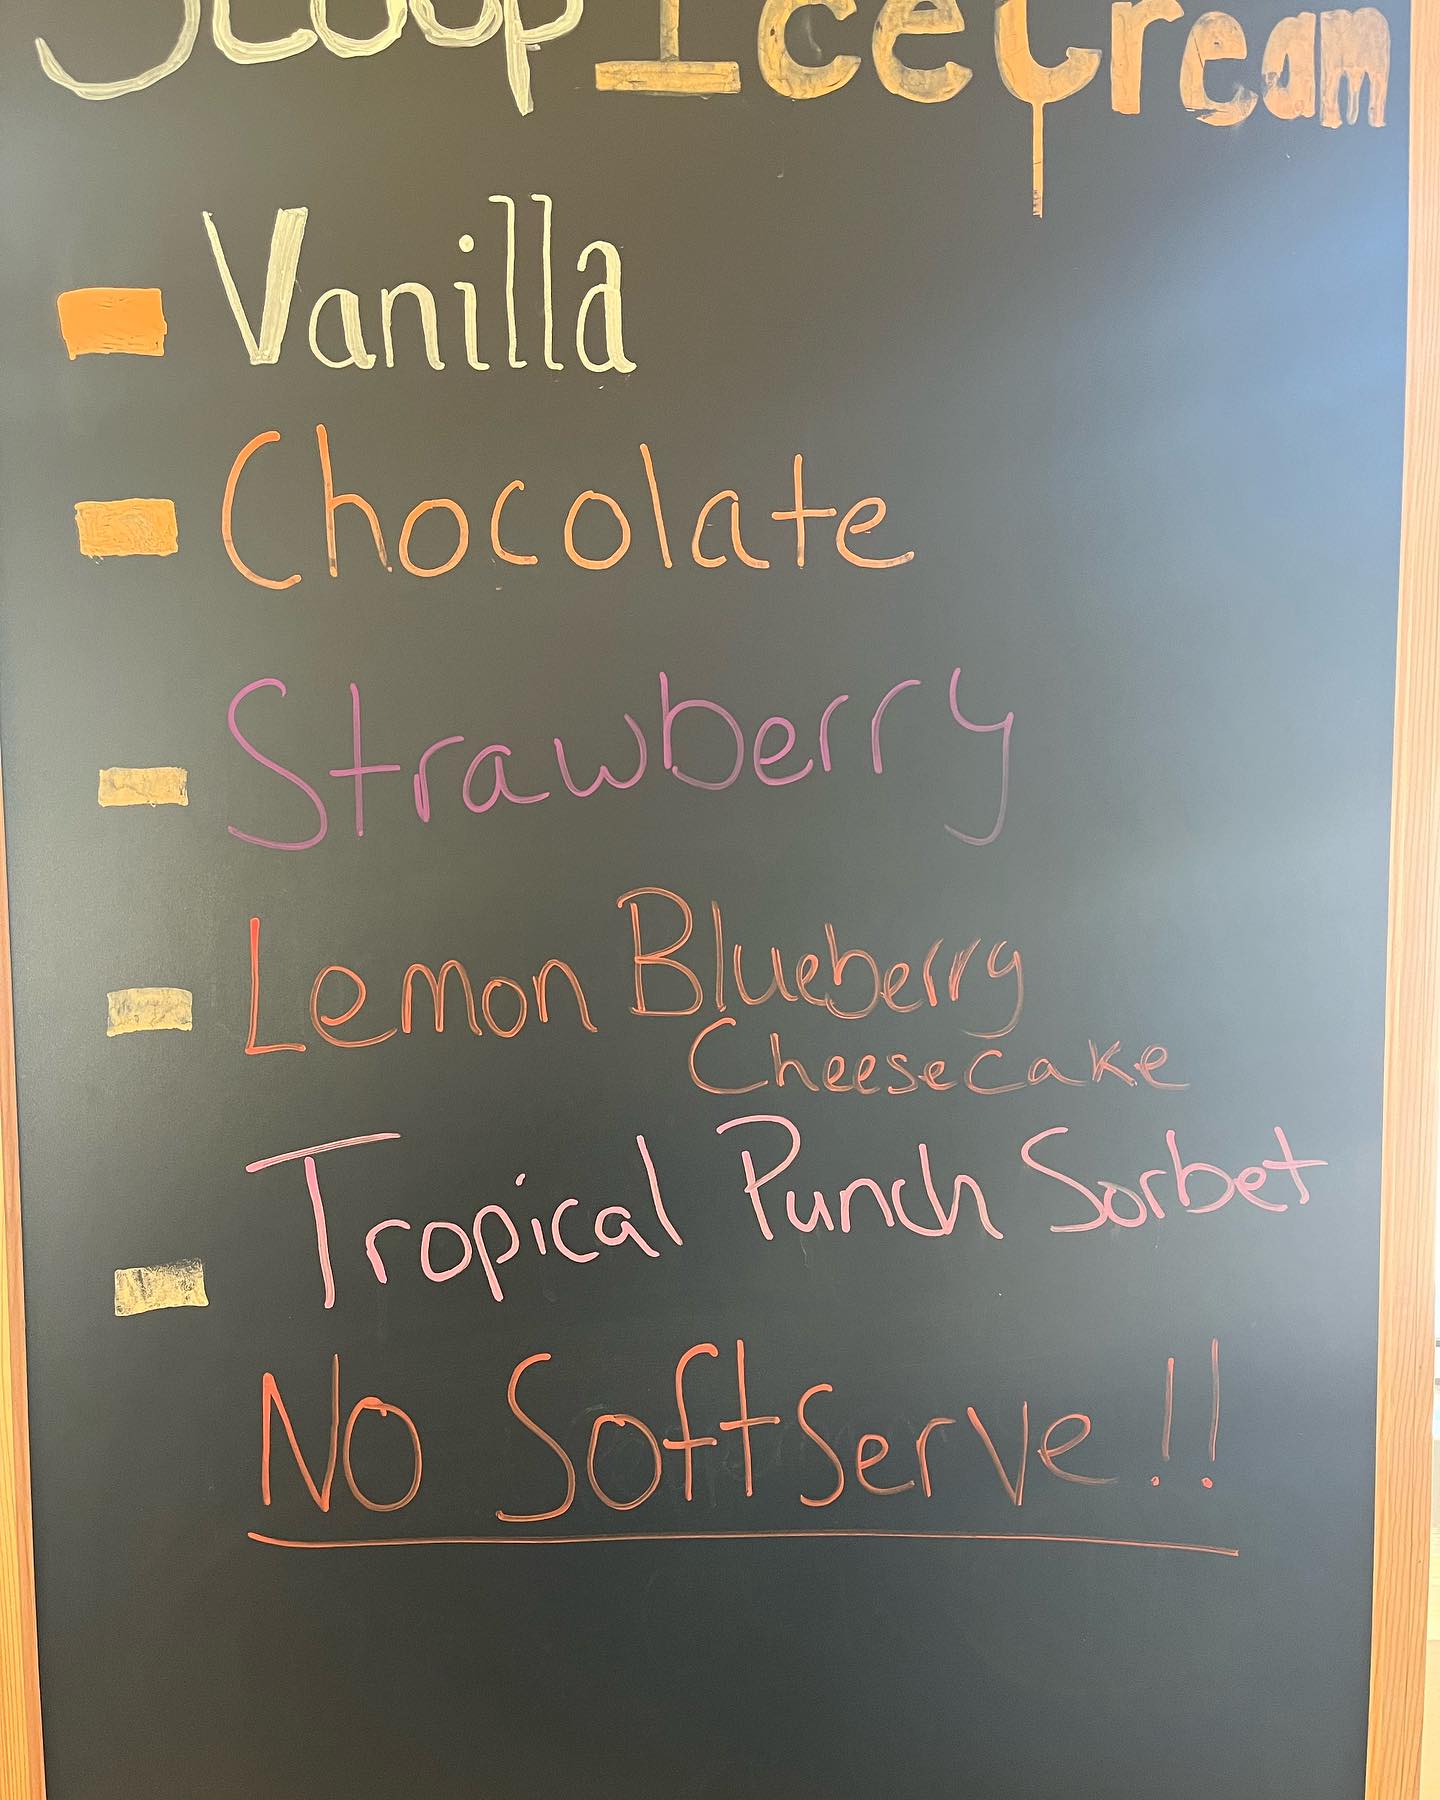 Scoop Ice Cream
Vanilla
Chocolate
Strawberry
Lemon Blueberry
Cheesecake
Tropical Punch Sorbet
No Softserve!!